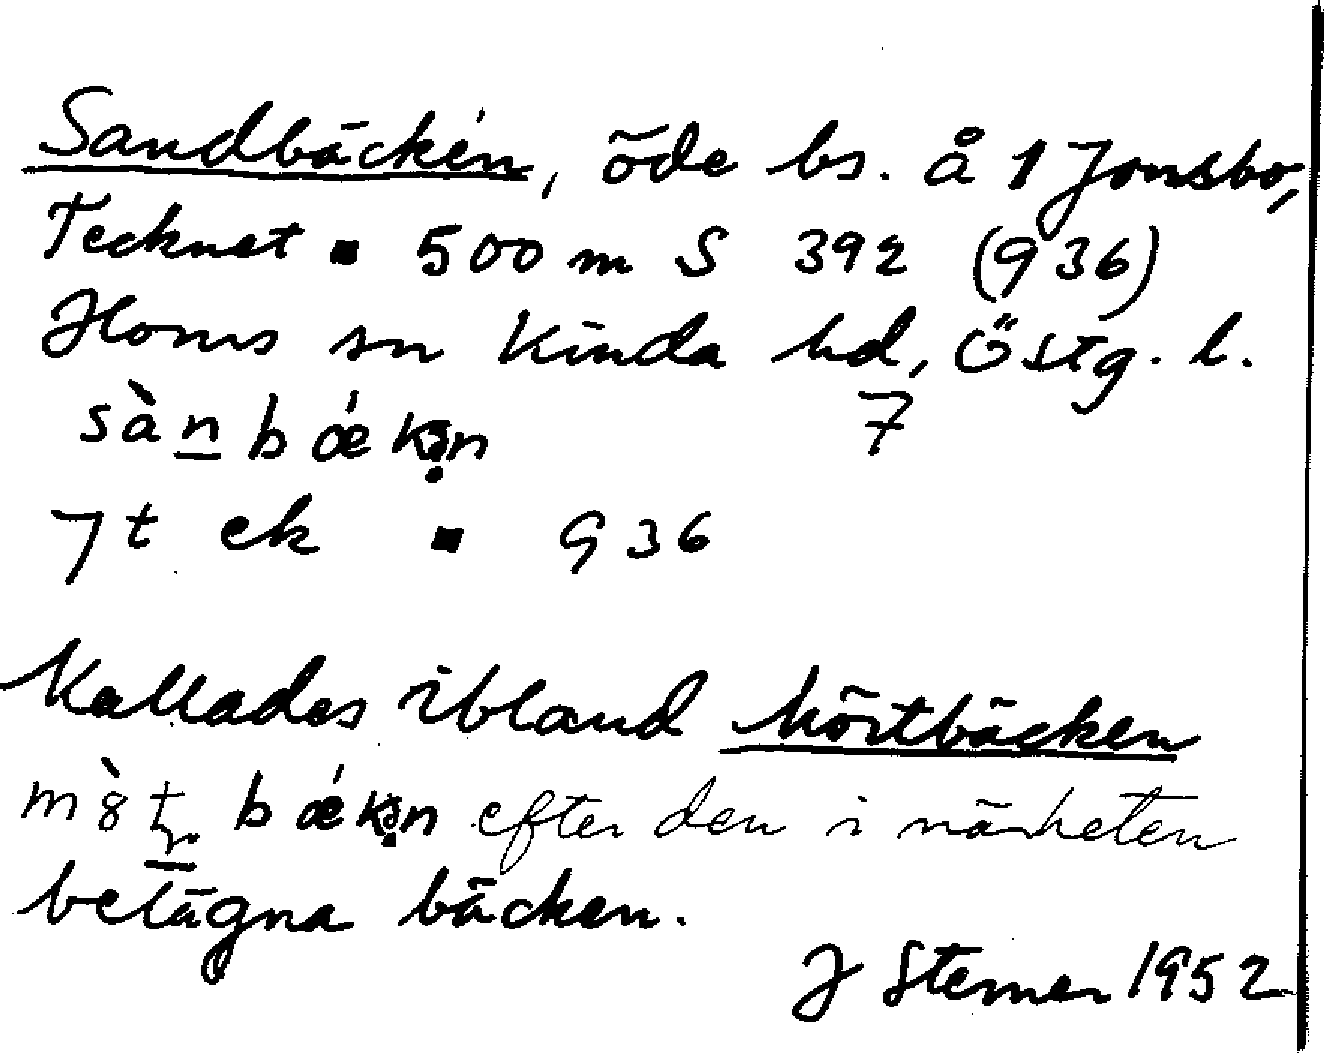 Sandbäcken, öde bs. å 1 Jonsbo,
Tecknet ▪ 500 m S 392 (936)
Horns sn Kinda hd, Östg. l.
sàn bǽkən 7
7t ek ▪ 936
Kallades ibland Mörtbäcken
bǽkən efter den i närheten
belägna bäcken.
J Sterner 1952